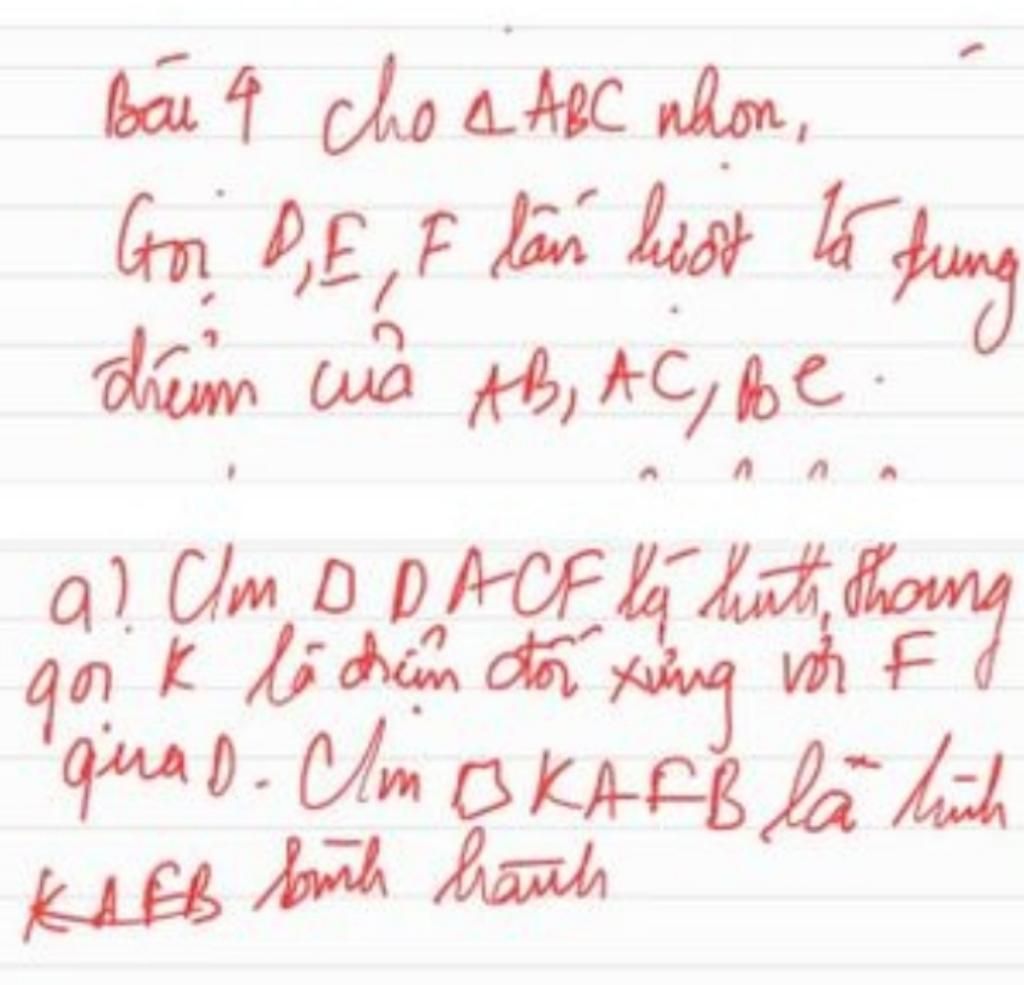 Bài 4 cho Δ ABC nhọn,
Gọi D, E, F lần lượt là trung
điểm của AB, AC, BC.
a) C/m □ DACF là hình thang
gọi K là điểm đối xứng với F
qua D. C/m □ KAFB là hình
KAFB bình hành